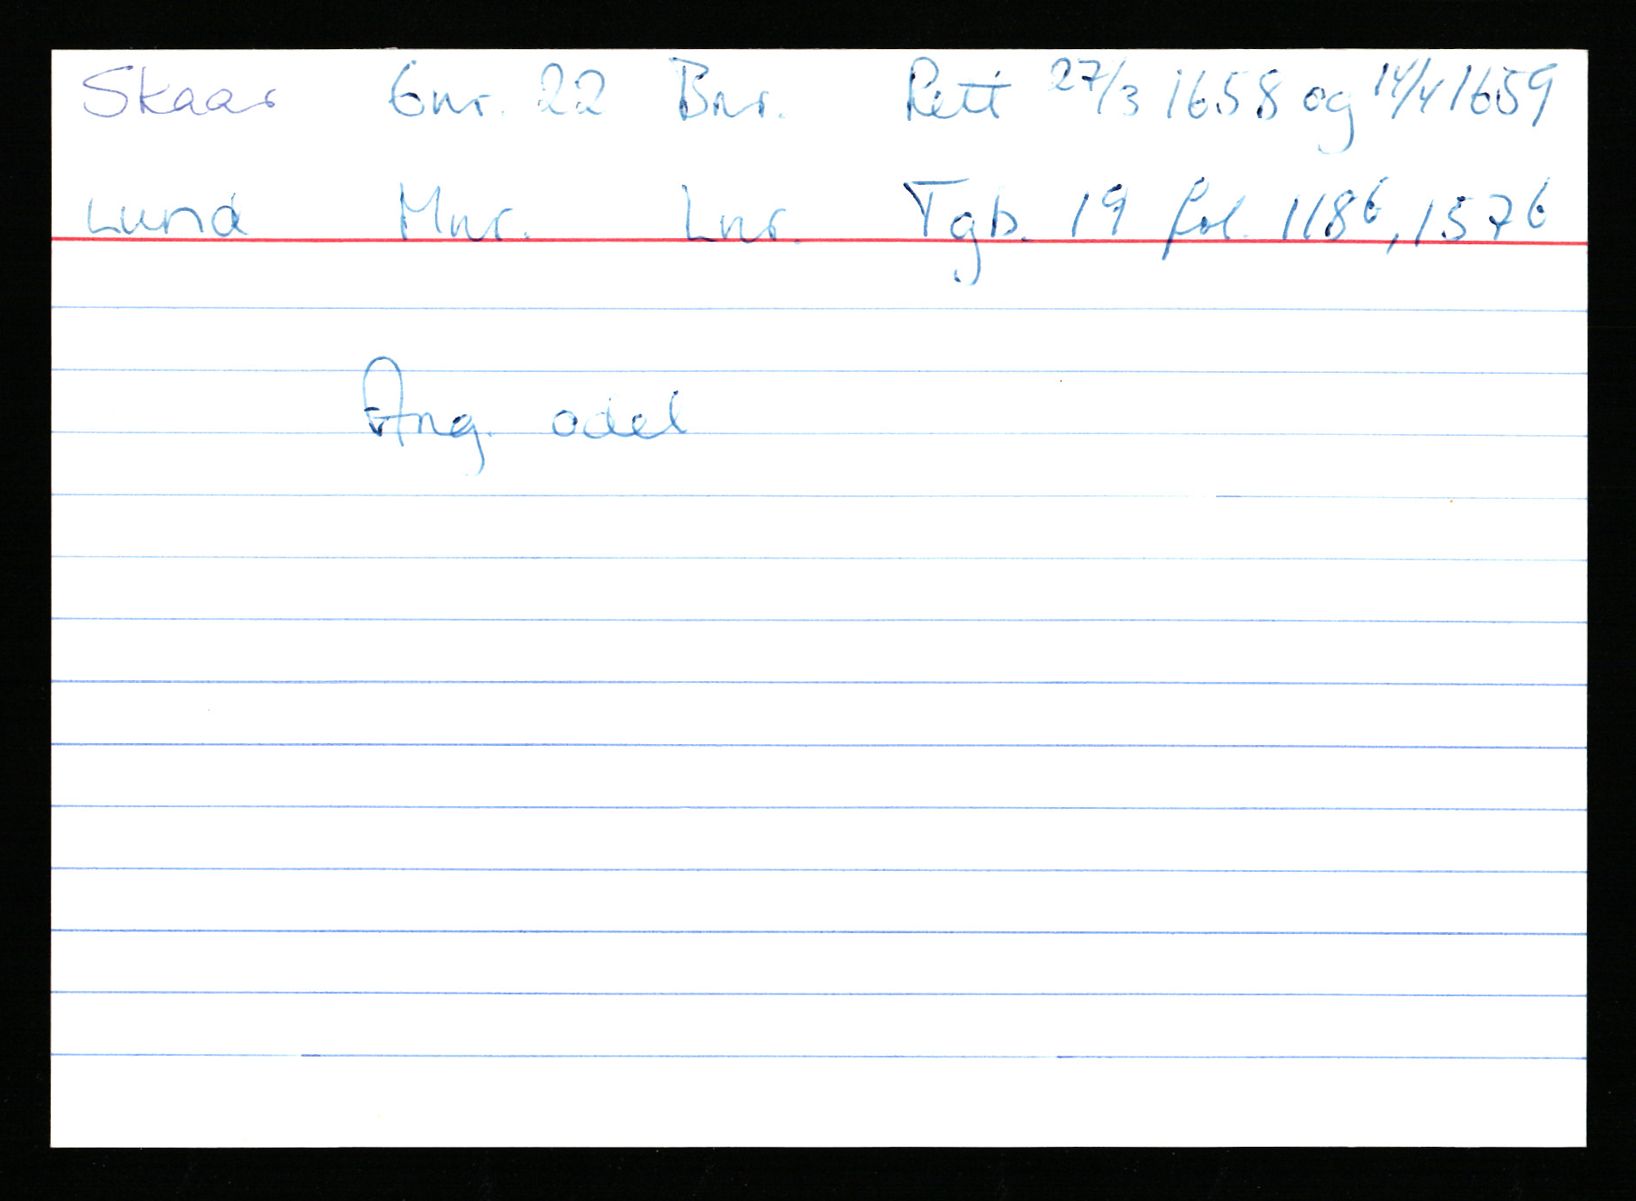 Skaar Gnr. 22 Bnr. Rett 27/3 1658 og 14/4 1659
Lund Mnr. Lnr. Tgb. 19 fol. 118b, 157b
Ang. odel